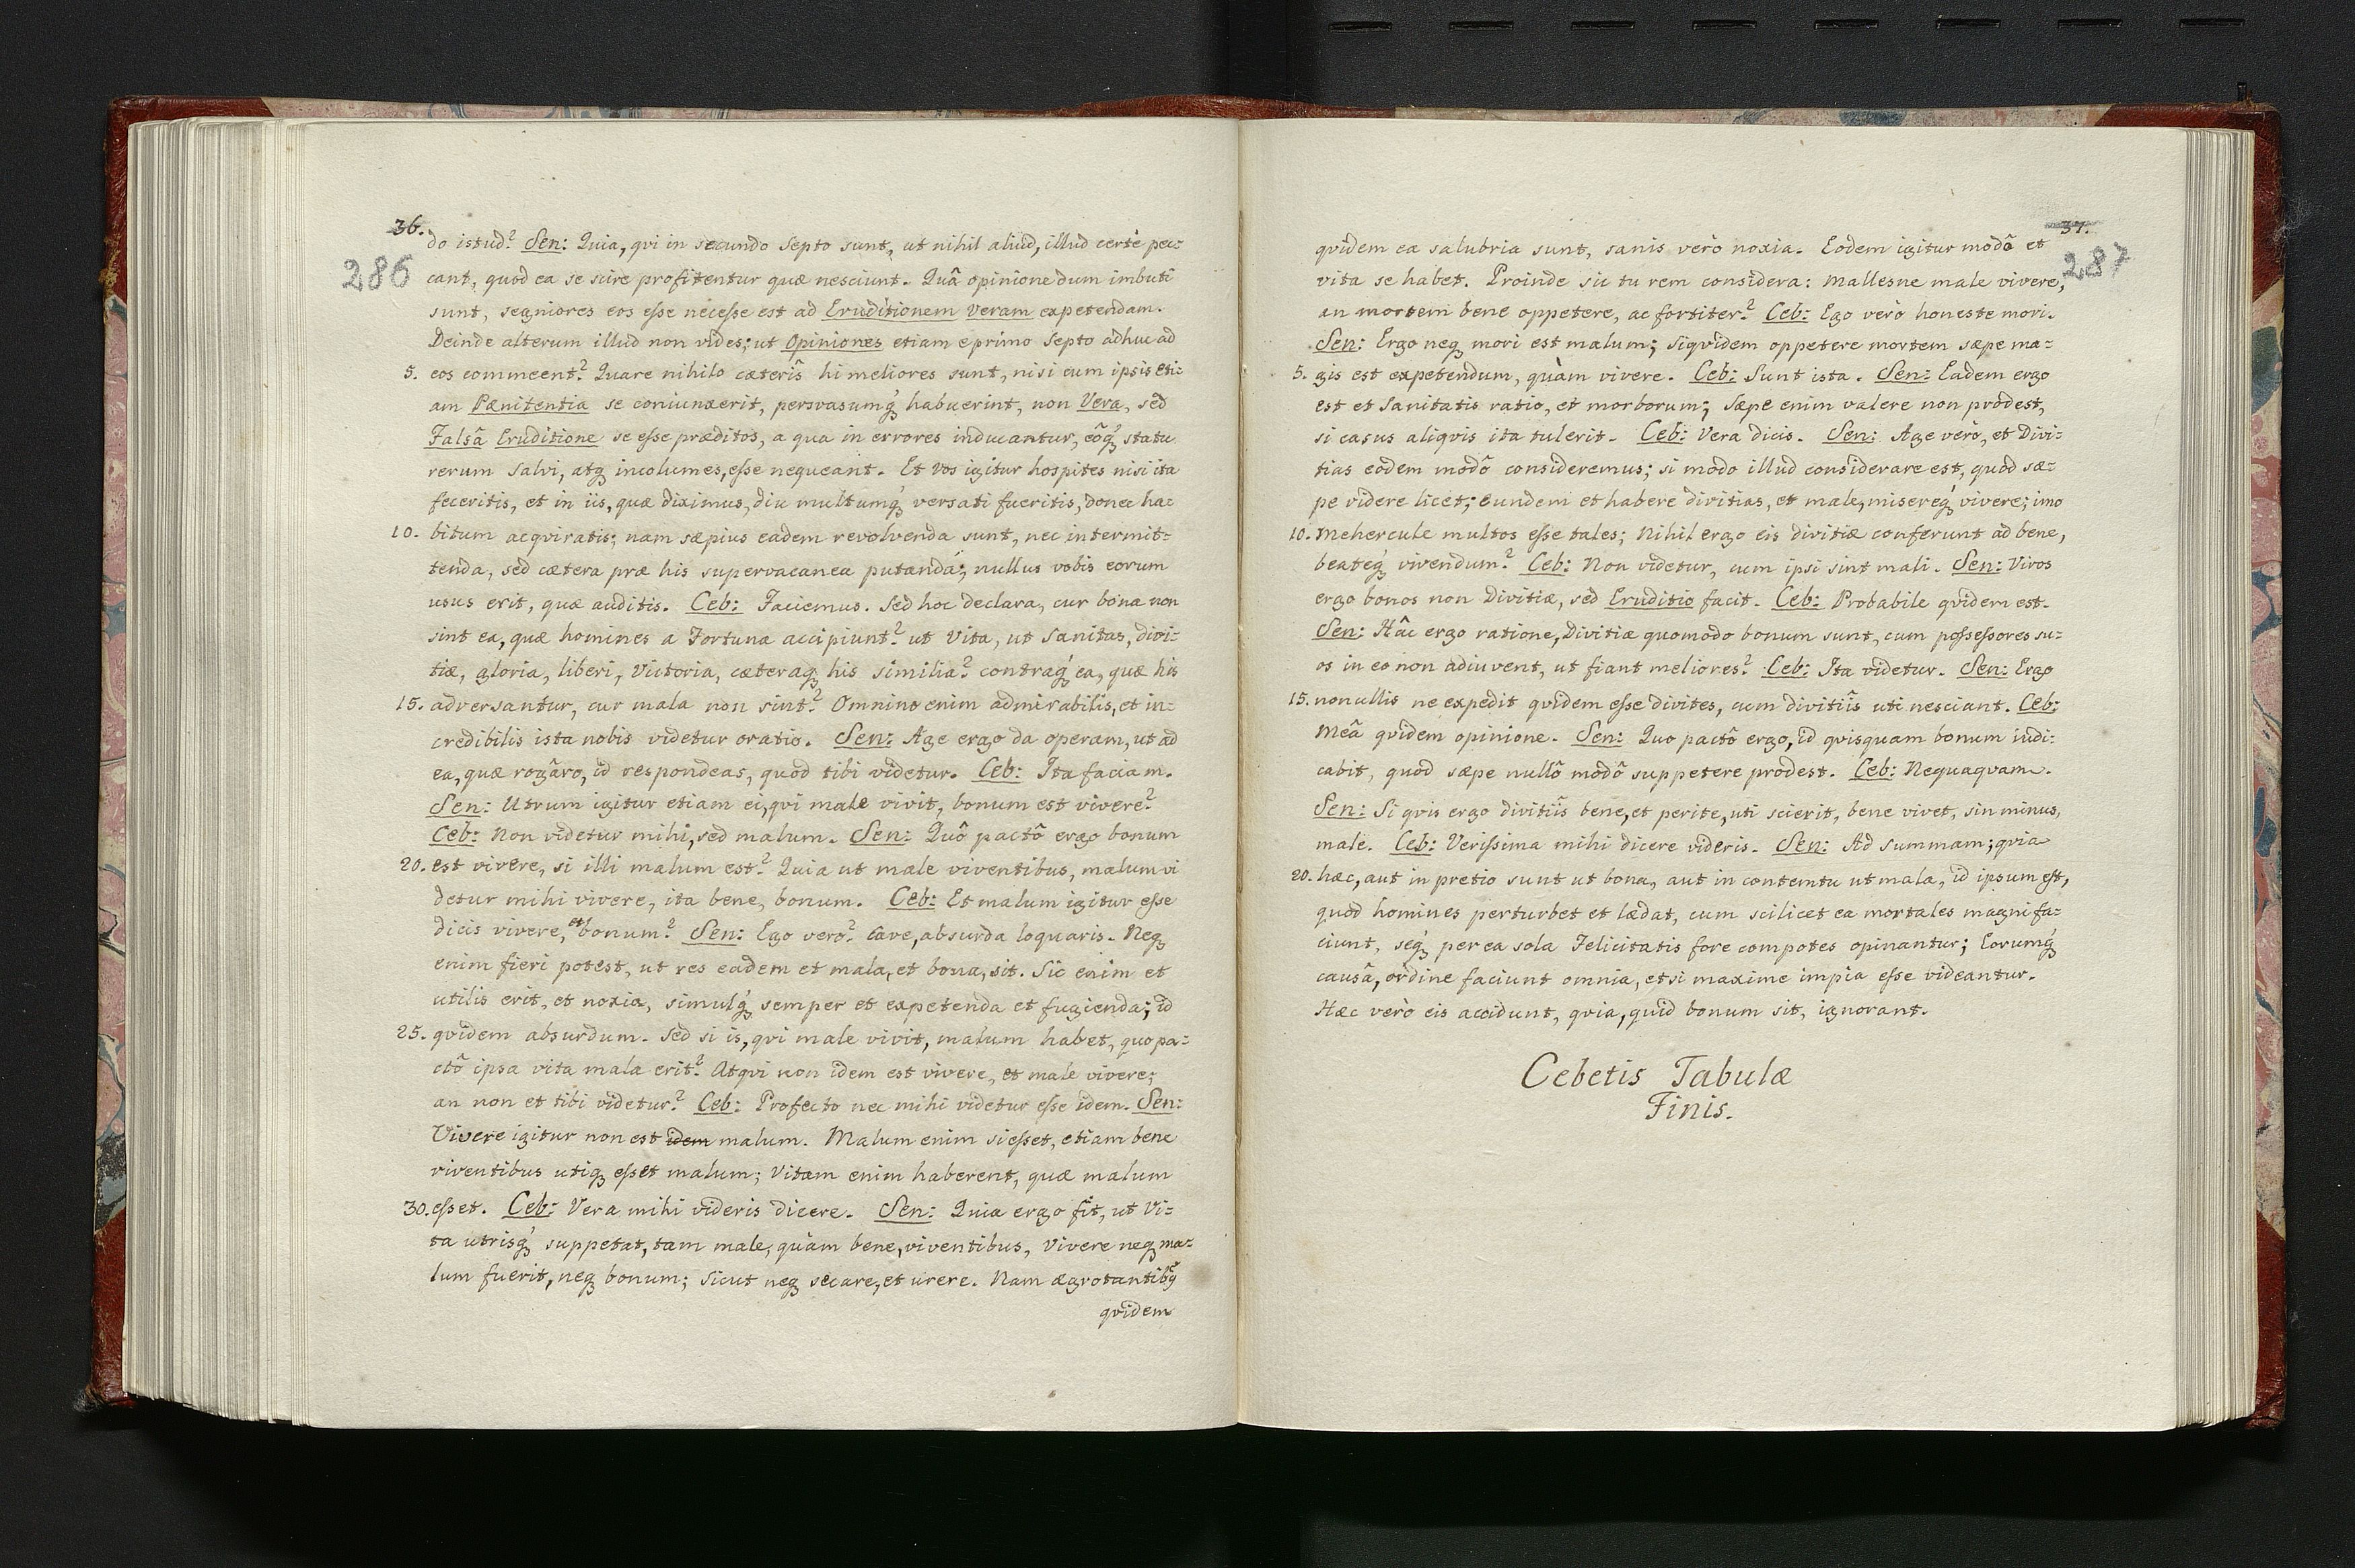 36.
286
do istud? Sen: Quia, qvi in secundo Septo sunt, ut nihil aliud, illud certè pec-
cant, quod ea se scire profitentur quæ nesciunt. Quâ opinione dum imbuti
sunt, segniores eos esse necesse est ad Eruditionem Veram expetendam.
Deinde alterum illud non vides; ut Opiniones etiam e primo Septo adhuc ad
5. eos commeent? Quare nihilo cæteris hi meliores sunt, nisi cum ipsis eti-
am Pænitentia se coniunxerit, persvasumq́ꝫ habuerint, non Vera, sed
Falsâ Eruditione se esse præditos, a qua in errores inducantur, eôq́ꝫ statu
rerum salvi, atqꝫ incolumes, esse nequeant. Et vos igitur hospites nisi ita
feceritis, et in iis, quæ diximus, diu multumq́ꝫ versati fueritis, donec ha-
10. bitum acqviratis; nam sæpius eadem revolvenda sunt, nec intermit-
tenda, sed cætera præ his supervacanea putanda; nullus vobis eorum
usus erit, quæ auditis. Ceb: Faciemus. Sed hoc declara, cur bona non
sint ea, quæ homines a Fortuna accipiunt? ut Vita, ut Sanitas, divi-
tiæ, gloria, liberi, Victoria, cæteraqꝫ his similia? contraq́ꝫ ea, quæ his
15. adversantur, cur mala non sint? Omnino enim admirabilis, et in-
credibilis ista nobis videtur oratio. Sen: Age ergo da operam, ut ad
ea, quæ rogâro, id respondeas, quod tibi videtur. Ceb: Ita faciam.
Sen: Utrum igitur etiam ei, qvi male vivit, bonum est vivere?
Ceb: Non videtur mihi, sed malum. Sen: Quô pactô ergo bonum
20. est vivere, si illi malum est? Quia ut male viventibus, malum vi
detur mihi vivere, ita bene, bonum. Ceb: Et malum igitur esse
dicis vivere, et bonum? Sen: Ego vero? Cave, absurda loquaris. Neqꝫ
enim fieri potest, ut res eadem et mala, et bona, sit. Sic enim et
utilis erit, et noxia, simulq́ꝫ semper et expetenda et fugienda; id
25. qvidem absurdum. Sed si is, qvi male vivit, malum habet, quo pa-
ctô ipsa vita mala erit? Atqvi non idem est vivere, et male vivere;
an non et tibi videtur? Ceb: Profecto nec mihi videtur esse idem. Sen:
Vivere igitur non est idem malum. Malum enim si esset, etiam bene
viventibus utiqꝫ esset malum; Vitam enim haberent, quæ malum
30. esset. Ceb: Vera mihi videris dicere. Sen: Quia ergo fit, ut Vi-
ta utrisq́ꝫ suppetat, tam male, quàm bene, viventibus, Vivere neqꝫ ma-
lum fuerit, neqꝫ bonum; sicut neqꝫ secare, et urere. Nam ægrotantibꝰ
qvidem
37.
287
qvidem ea salubria sunt, sanis verò noxia. Eodem igitur modô et
vita se habet. Proinde sic tu rem considera: mallesne male vivere,
an mortem bene oppetere, ac fortiter? Ceb: Ego verò honeste mori.
Sen: Ergo neqꝫ mori est malum; siqvidem oppetere mortem sæpe ma-
5. gis est expetendum, quàm vivere. Ceb: Sunt ista. Sen: Eadem ergo
est et Sanitatis ratio, et morborum; sæpe enim valere non prodest,
si casus aliqvis ita tulerit. Ceb: Vera dicis. Sen: Age verò, et Divi-
tias eodem modô consideremus; si modo illud considerare est, quod sæ-
pe videre licet; eundem et habere divitias, et male, misereq́ꝫ vivere; imo
10. mehercule multos esse tales; Nihil ergo eis divitiæ conferunt ad bene,
beateq́ꝫ vivendum? Ceb: Non videtur, cum ipsi sint mali. Sen: Viros
ergo bonos non Divitiæ, sed Eruditio facit. Ceb: Probabile qvidem est.
Sen: Hâc ergo ratione, Divitiæ quomodo bonum sunt, cum possessores su-
os in eo non adiuvent, ut fiant meliores? Ceb: Ita videtur. Sen: Ergo
15. nonullis ne expedit qvidem esse divites, cum divitiis uti nesciant. Ceb:
Meâ qvidem opinione. Sen: Quo pactô ergo, id qvisquam bonum iudi-
cabit, quod sæpe nullô modô suppetere prodest. Ceb: Nequaqvam.
Sen: Si qvis ergo divitiis bene, et perite, uti scierit, bene vivet, sin minus,
male. Ceb: Verissima mihi dicere videris. Sen: Ad summam; qvia
20. hæc, aut in pretio sunt ut bona, aut in contemtu ut mala, id ipsum est,
quod homines perturbet et lædat, cum scilicet ea mortales magni fa-
ciunt, seq́ꝫ per ea sola Felicitatis fore compotes opinantur; Eorumq́ꝫ
causâ, ordine faciunt omnia, etsi maxime impia esse videantur.
Hæc verò eis accidunt, qvia, quid bonum sit, ignorant.
Cebetis Tabulæ
Finis.